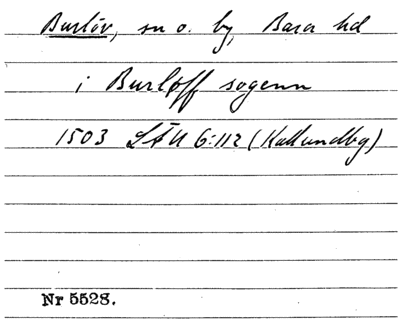 Burlöv, sn o. by, Bara hd
i Burløff sogenn
1503 LÄU 6:112 (Kallundbg)
Nr 5528.